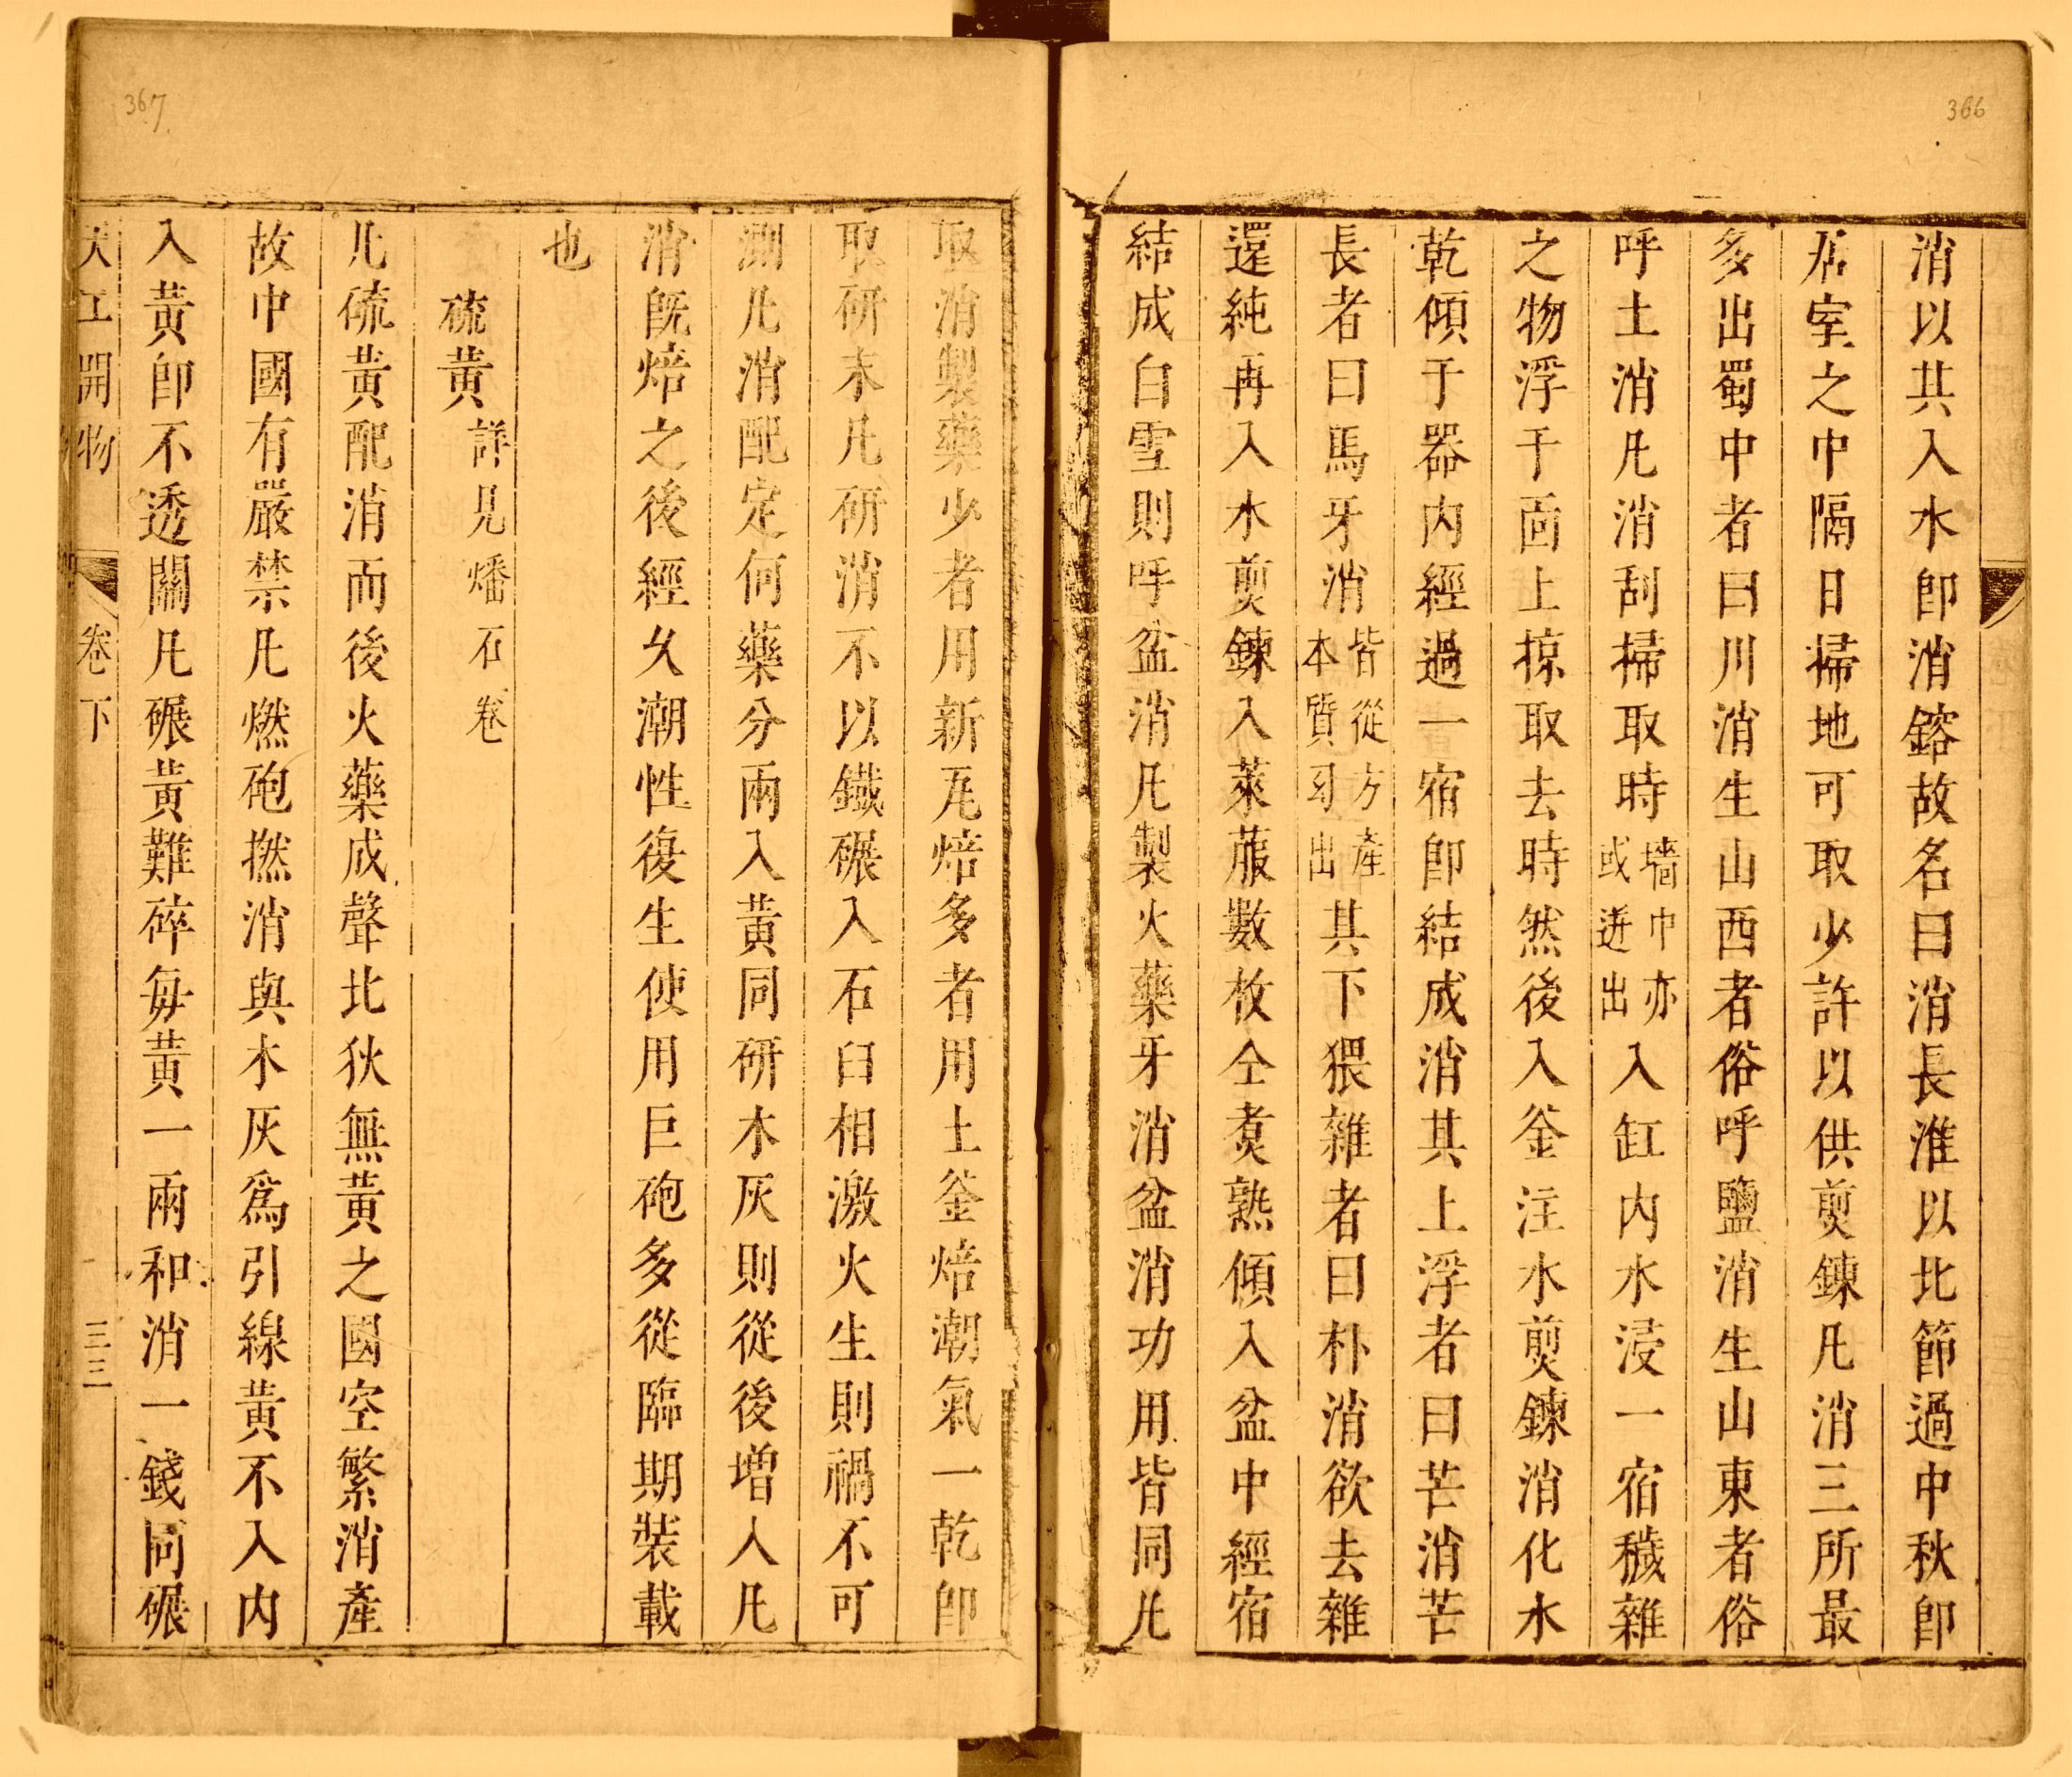 366
消以共入水卽消鎔故名曰消長淮以北節過中秋卽
居室之中隔日掃地可取少許以供煎鍊凡消三所最
多出蜀中者曰川消生山西者俗呼鹽消生山東者俗
呼土消凡消刮掃取時墻中亦或迸出入缸內水浸一宿穢雜
之物浮于面上掠取去時然後入釜注水煎鍊消化水
乾傾于器內經過一宿卽結成消其上浮者曰芒消芒
長者曰馬牙消皆從方產本質幻出其下猥雜者曰朴消欲去雜
還純再入水煎鍊入萊菔數枚仝煮熟傾入盆中經宿
結成白雪則呼盆消凡製火藥牙消盆消功用皆同凡
367
取消製藥少者用新瓦焙多者用土釜焙潮氣一乾卽
取研末凡研消不以鐵碾入石臼相激火生則禍不可
測凡消配定何藥分兩入黃同研木灰則從後增入凡
消旣焙之後經久潮性復生使用巨砲多從臨期裝載
也
硫黃詳見燔石卷
凡硫黃配消而後火藥成聲北狄無黃之國空繁消產
故中國有嚴禁凡燃砲撚消與木灰爲引線黃不入內
入黃卽不透關凡碾黃難碎每黃一兩和消一錢同碾
天工開物 卷下 三三